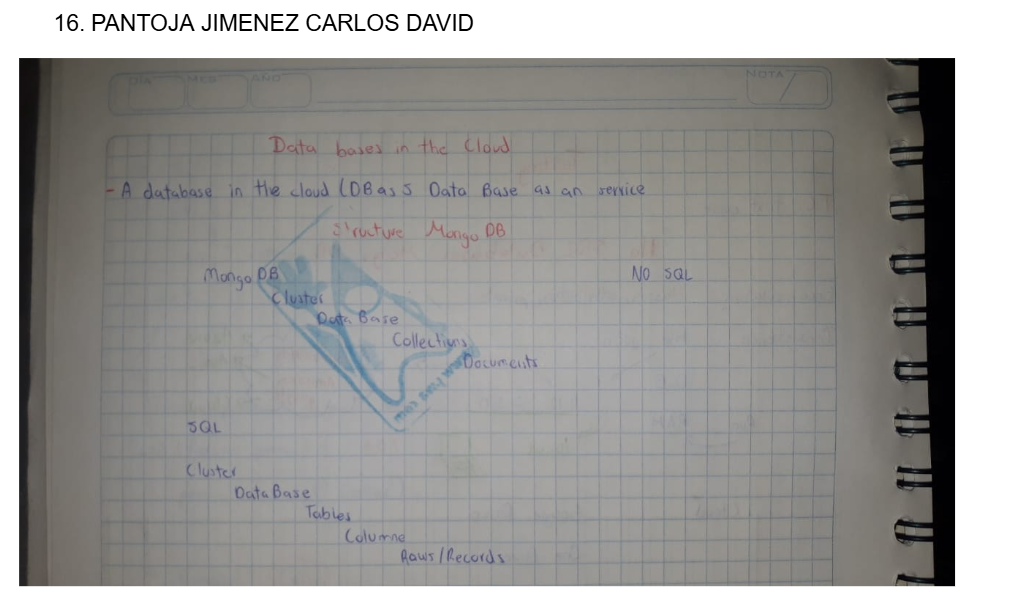 16. PANTOJA JIMENEZ CARLOS DAVID
DIA MES AÑO NOTA
Data bases in the Cloud
- A database in the cloud (DB as S Data Base as an service
Structure Mongo DB
Mongo DB NO SQL
Cluster
Data Base
Collections
Documents
SQL
Cluster
Data Base
Tables
Columne
Raws/Records